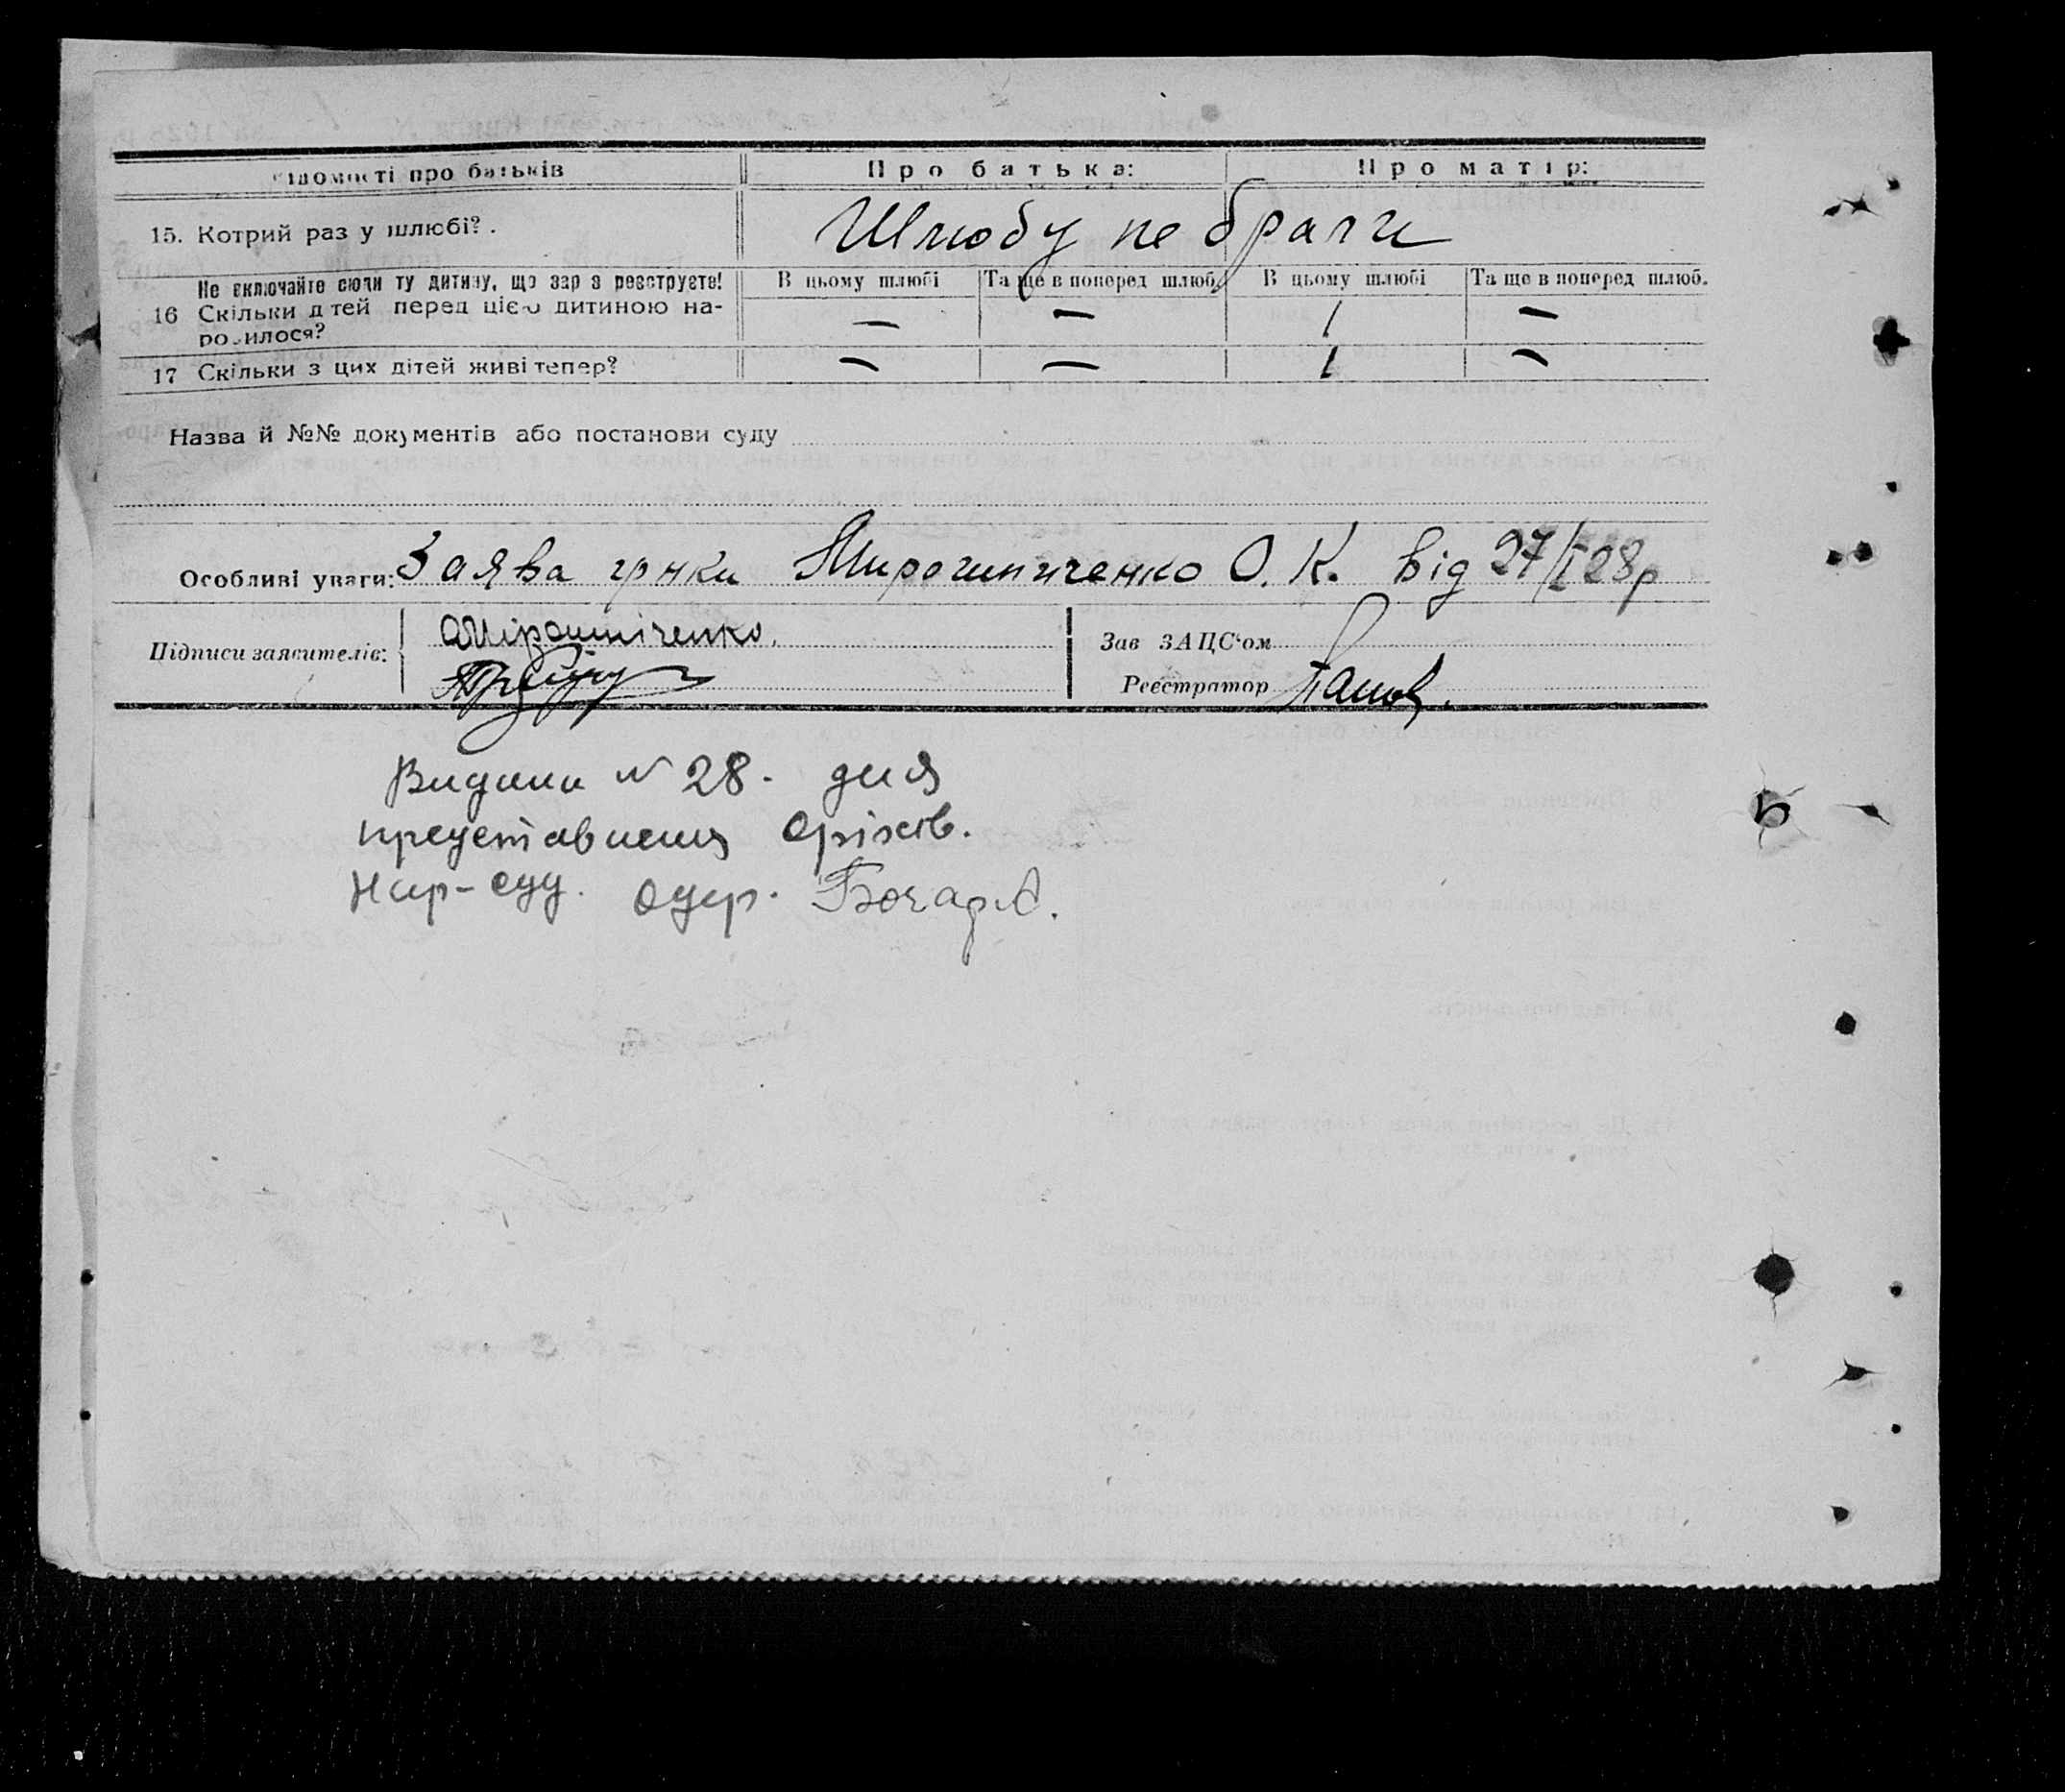 Відомості про батьків Про батька: Про матір:
15. Котрий раз у шлюбі?. Шлюбу не брали
Не включайте сюди ту дитину, що зараз реєструєте! В цьому шлюбі Та ще в поперед шлюб. В цьому шлюбі Та ще в поперед шлюб.
16 Скільки дітей перед цією дитиною на- — — 1 —
родилося?
17 Скільки з цих дітей живі тепер? — — 1 —
Назва й №№ документів або постанови суду
Особливі уваги: Заява гр-нки Мирошниченко О. К. від 27/I 28р
Підписи заявителів: Мірошніченко.
Зав ЗАЦС'ом
Реєстратор
Видана N 28. для
представления Оріхів.
Нар-суд.